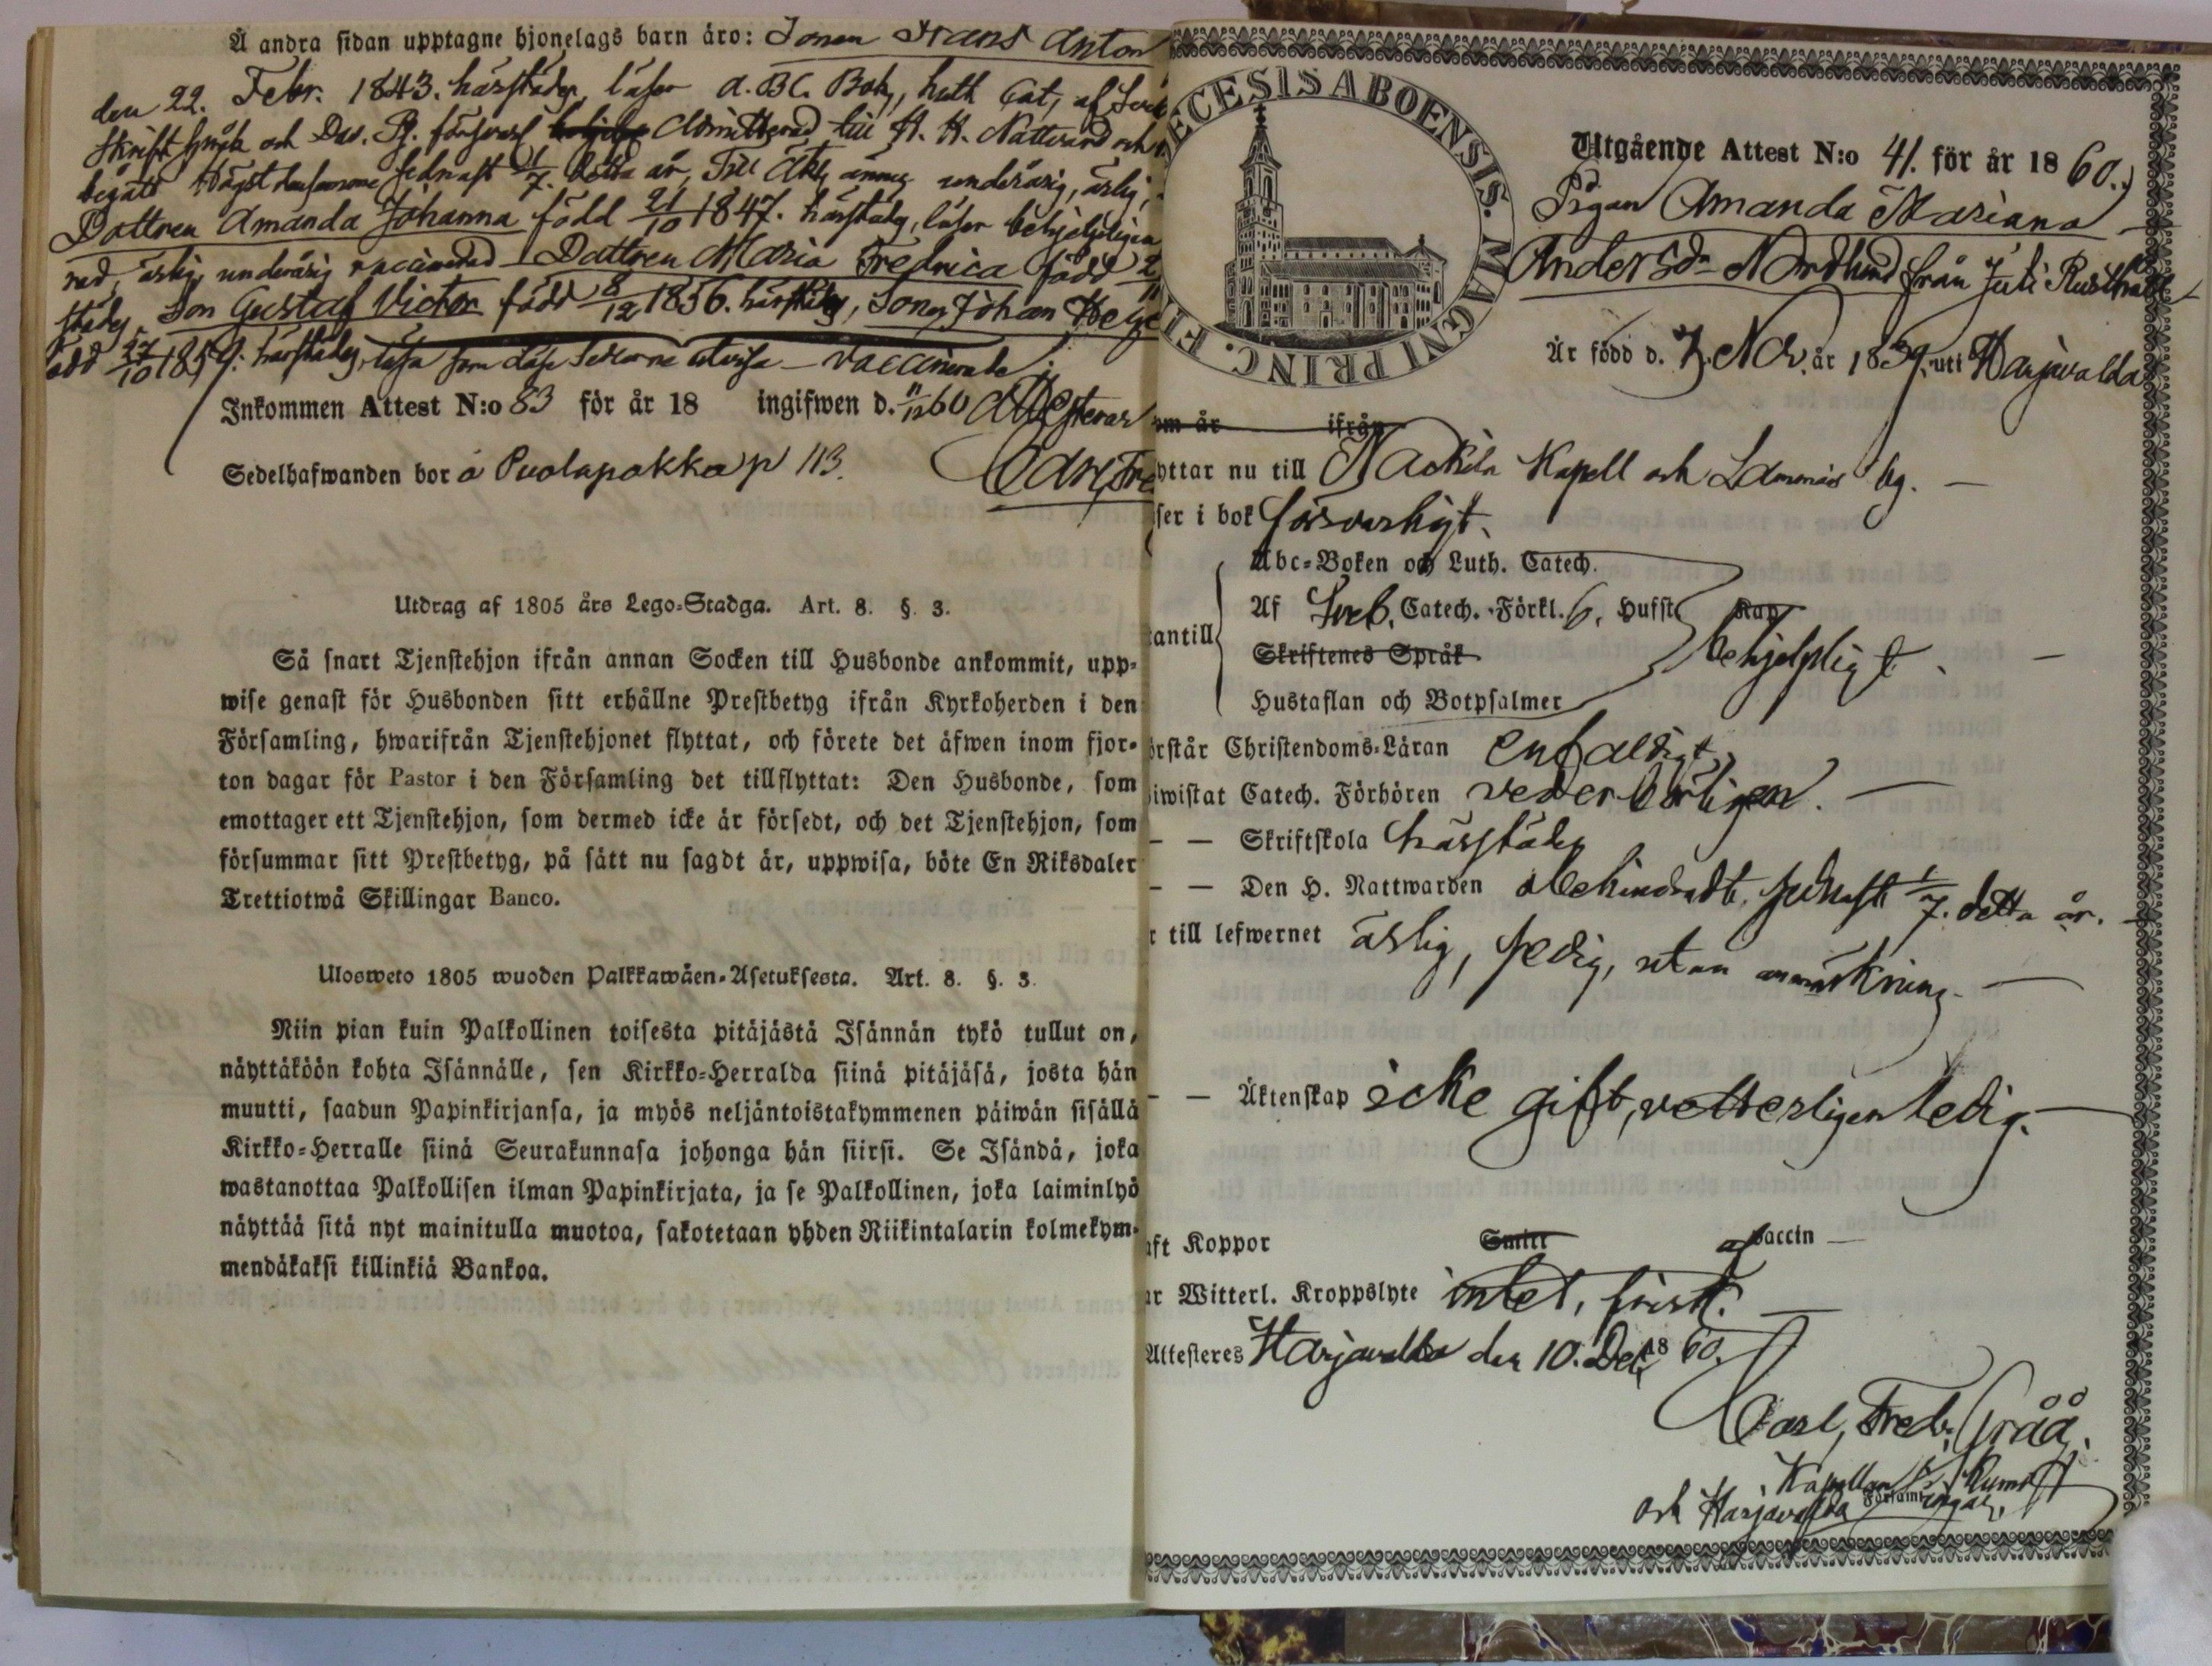 Å andra sidan upptagne hjonelags barn äro: Sonen Frans Anton
den 22. Febr. 1843. härstädes, läser A.B.C. Bok, Luth Cat, af Sveb
Skrift språk och Dav. Ps. försvarl Admitterad till H. H. Nattvard och
begått sednast 1/7. detta år, Till Äkt, ännu underårig, ärlig,
Dottren Amanda Johanna född 21/10 1847. härstädes, läser behjelpligen
rad, ärlig, underårig vaccinerad Dottren Maria Fredrica född 2
städes Son Gustaf Victor född 8/12 1856. härstädes, Sonen Johan Helge
född 27/10 1859. härstädes, vaccinerade
Inkommen Attest N:o 83 för år 18 ingifwen d. 11/12 60 attesteras
Sedelhafwanden bor å Puolapakka p 113. Carl Fre
Utdrag af 1805 års Lego-Stadga. Art. 8. §. 3.
Så snart Tjenstehjon ifrån annan Socken till Husbonde ankommit, upp-
wise genast för Husbonden sitt erhållne Prestbetyg ifrån Kyrkoherden i den
Församling, hwarifrån Tjenstehjonet flyttat, och förete det äfwen inom fjor-
ton dagar för Pastor i den Församling det tillflyttat: Den Husbonde, som
emottager ett Tjenstehjon, som dermed icke är försedt, och det Tjenstehjon, som
försummar sitt Prestbetyg, på sätt nu sagdt är, uppwisa, böte En Riksdaler
Trettiotwå Skillingar Banco.
Ulosweto 1805 wuoden Palkkawäen-Asetuksesta. Art. 8. §. 3.
Niin pian kuin Palkollinen toisesta pitäjästä Isännän tykö tullut on,
näyttäköön kohta Isännälle, sen Kirkko-Herralda siinä pitäjäsä, josta hän
muutti, saadun Papinkirjansa, ja myös neljäntoistakymmenen päiwän sisällä
Kirkko-Herralle siinä Seurakunnasa johonga hän siirsi. Se Isändä, joka
wastanottaa Palkollisen ilman Papinkirjata, ja se Palkollinen, joka laiminlyö
näyttää sitä nyt mainitulla muotoa, sakotetaan yhden Riikintalarin kolmekym-
mendäkaksi killinkiä Bankoa.
ECESIS ABOENSIS. MAGNI PRINC. FI
Utgående Attest N:o 41. för år 1860.
Pigan Amanda Mariana
Andersdr Nordlund från Juti Rusthåll
Är född d. 7. Nov. år 1839. uti Harjavalda
om år ifrån
yttar nu till Nackila Kapell och Lammais by.
ser i bok försvarligt.
Abc-Boken och Luth. Catech.
Af Sveb. Catech. Förkl. 6. Hufst. Kap
antill Skriftenes Språk behjelpligt
Hustaflan och Botpsalmer
örstår Christendoms-Läran enfaldigt
iwistat Catech. Förhören vederbörligen.
— — Skriftskola härstädes
— — Den H. Nattwarden obehindradt, sednast 1/7. detta år.
r till lefwernet ärlig, sedig, utan anmärkning
— — Äktenskap icke gift, vetterligen ledig.
aft Koppor Smitt af vaccin
ar Witterl. Kroppslyte intet, frisk.
Attesteres Harjavalda den 10. Dec. 1860.
Carl Fredr. Gråå,
Kapellan i Kumo
och Harjavalda Församlingar.